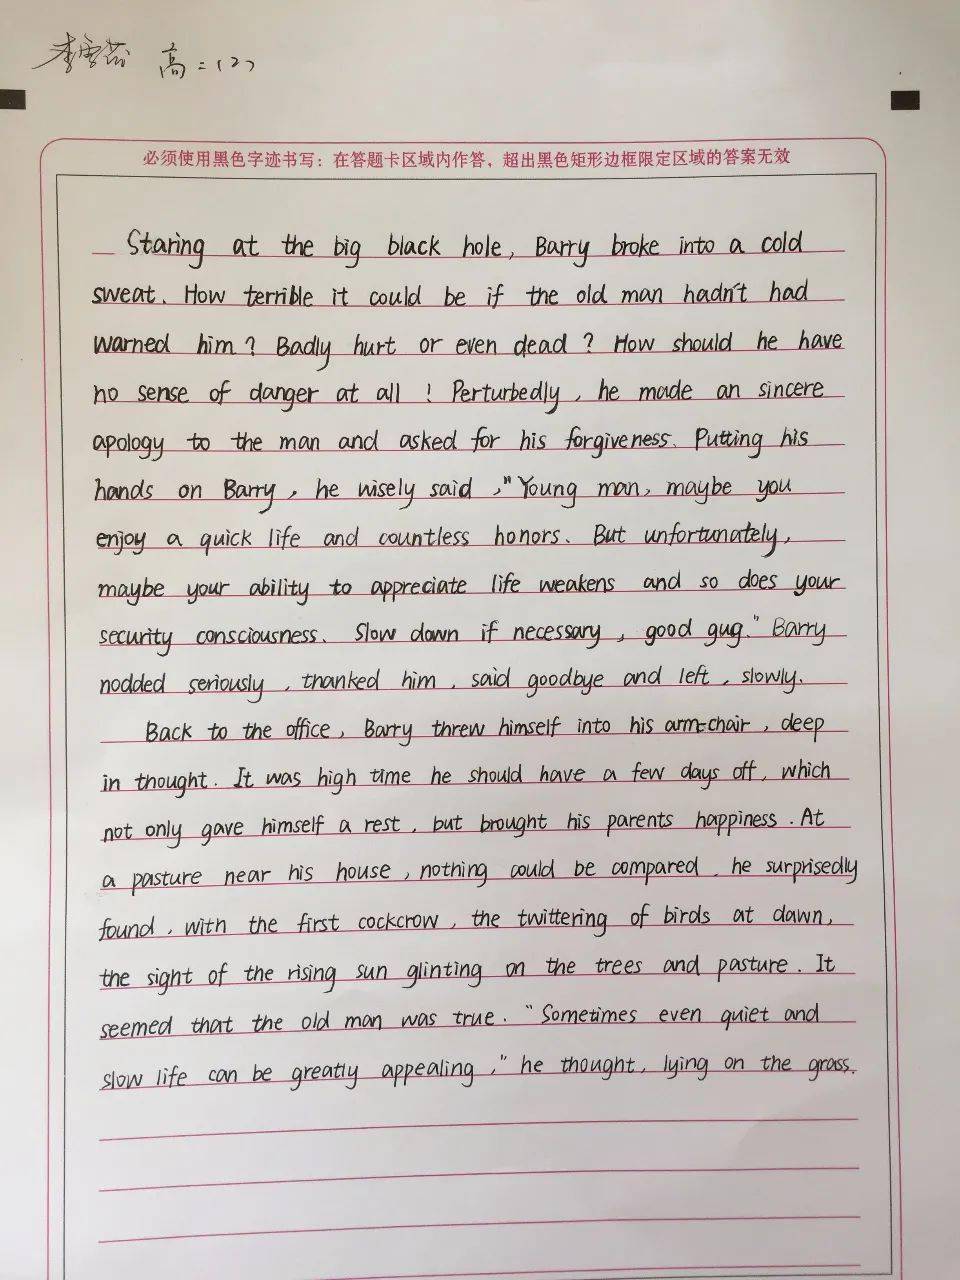 高二(2)
必须使用黑色字迹书写：在答题卡区域内作答，超出黑色矩形边框限定区域的答案无效
Staring at the big black hole, Barry broke into a cold
sweat. How terrible it could be if the old man hadn't had
warned him? Badly hurt or even dead? How should he have
no sense of danger at all! Perturbedly, he made an sincere
apology to the man and asked for his forgiveness. Putting his
hands on Barry, he wisely said, "Young man, maybe you
enjoy a quick life and countless honors. But unfortunately,
maybe your ability to appreciate life weakens and so does your
security consciousness. Slow down if necessary, good gug." Barry
nodded seriously, thanked him, said goodbye and left, slowly.
Back to the office, Barry threw himself into his arm-chair, deep
in thought. It was high time he should have a few days off, which
not only gave himself a rest, but brought his parents happiness. At
a pasture near his house, nothing could be compared, he surprisedly
found, with the first cockcrow, the twittering of birds at dawn,
the sight of the rising sun glinting on the trees and pasture. It
seemed that the old man was true. "Sometimes even quiet and
slow life can be greatly appealing," he thought, lying on the grass.